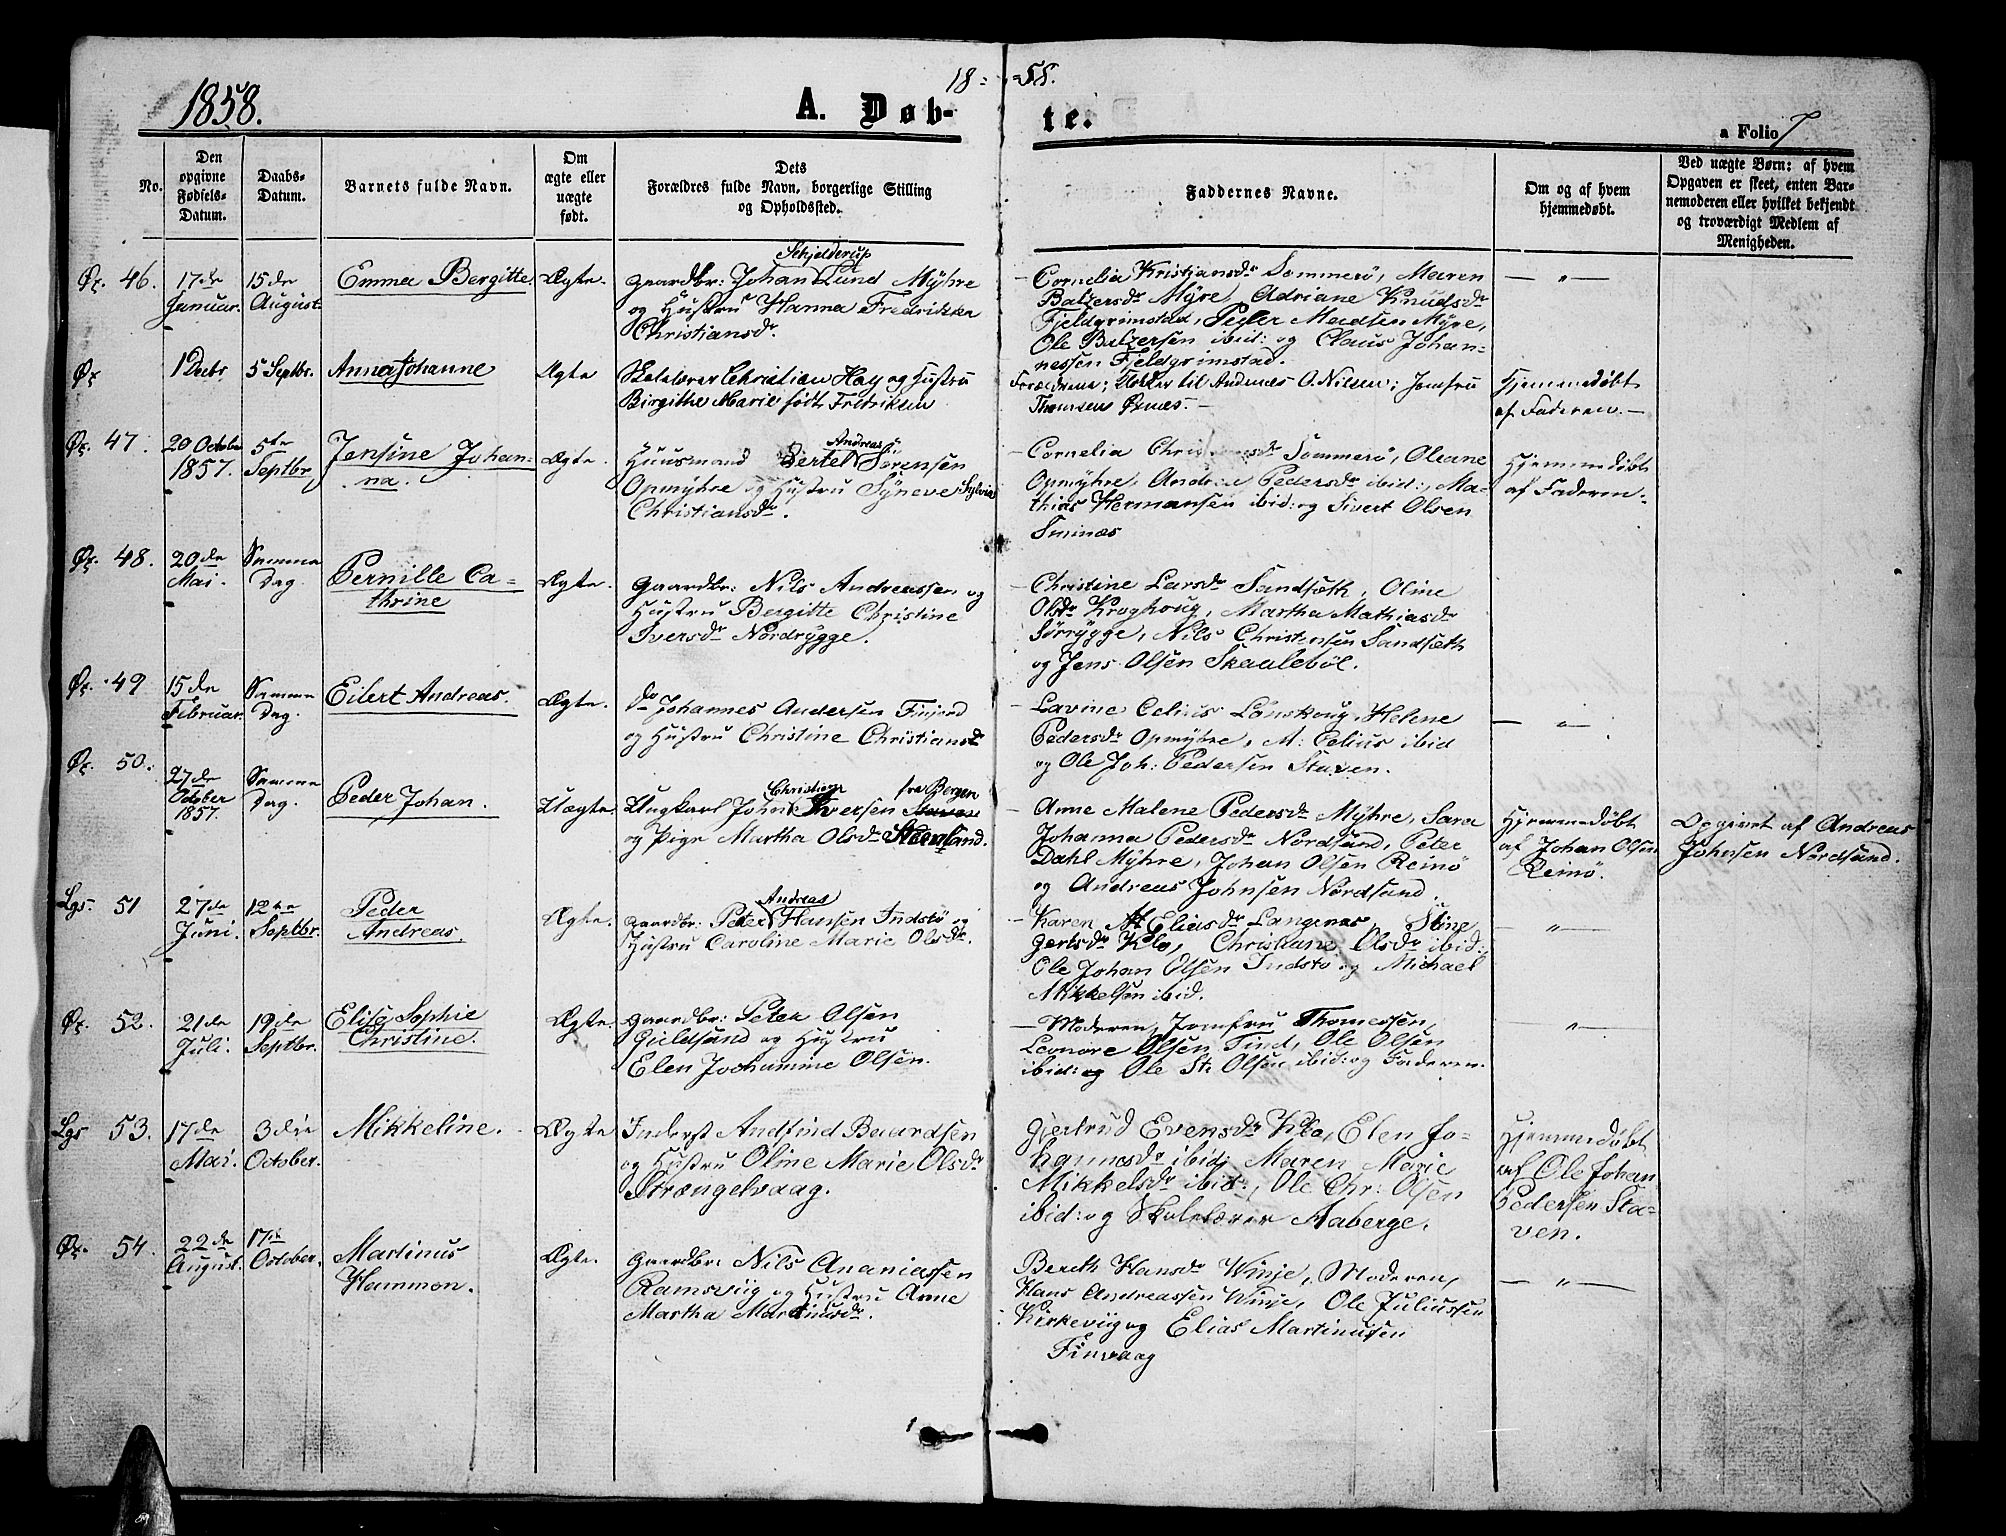 1858.
18=
=58.
A. Døb-
te.
a Folio 7
No.
Den
opgivne
Fødsels-
Datum.
Daabs-
Datum.
Barnets fulde Navn.
Om
ægte eller
uægte
født.
Dets
Forældres fulde Navn, borgerlige Stilling
og Opholdssted.
Faddernes Navne.
Om og af hvem
hjemmedøbt.
Ved uægte Børn: af hvem
Opgaven er skeet, enten Bar-
nemoderen eller hvilket bekjendt
og troværdigt Medlem af
Menigheden.
Øx. 46.
17de
Januar.
15de
August.
Emma Bergitte.
Ægte.
Schjelderup
Gaardbr: Johan Lund Myhre
og Hustru Hanna Fredrikke
Christiansdr.
– Cornelia Kristjansdr Sommerø, Maren
Balzersdr Myre, Adriane Knudsdr
Fjeldgrimstad, Peder Madsen Myre,
Ole Balzersen ibid: og Claus Johan-
nessen Fjeldgrimstad.
— " —
Øx
1 Decbr
5 Septbr.
Anna Johanne
Ægte
Skolelærer Christian Hay og Hustru
Birgithe Marie født Fredriksen
Forældrene; O. Nilsen; Jomfru
Thomesen Øxnæs. –
Hjemmedøbt
af Faderen. –
Øx. 47.
20 October
1857.
5te
Septbr,
Jensine Johan-
na.
Ægte.
Andreas
Huusmand Bertel Sørensen
Opmyhre og Hustru Syneve Sylvia
Christiansdr.
– Cornelia Sommerø, Oleane
Opmyhre, Andrea Pedersdr ibid:, Ma-
thias Hermansen ibid: og Sivert Olsen
Smines
Hjemmedøbt
af Faderen.
Øx. 48.
20de
Mai.
Samme
Dag.
Pernille Ca-
thrine
Ægte.
Gaardbr: Nils Andreassen og
Hustru Bergitte Christine
Iversdr Nordrygge.
– Christine Larsdr Sandsæth, Oline
Olsdr Kroghoug, Martha Mathiasdr
Sørrygge, Nils Christensen Sandsæth
og Jens Olsen Skaaleböl.
Øx. 49
15de
Februar.
Samme
Dag.
Eilert Andreas.
Ægte.
do Johannes Andersen Finjord
og Hustru Christine Christiansdr
– Lavine Celius Lonskoug, Helene
Pedersdr Opmyhre, M: Celius ibid
og Ole Joh: Pedersen Staven.
— " —
Øx. 50.
27de
October
1857.
Samme
Dag.
Peder Johan.
Uægte.
Christian fra Bergen
Ungkarl John Iversen
og Pige Martha Olsdr
– Anne Malene Pedersdr Myhre, Sara
Johanna Pedersdr Nordsund, Peter
Dahl Myhre, Johan Olsen Reinø
og Andreas Johnsen Nordsund.
Hjemmedøbt
af Johan Olsen
Reinø.
Opgivet af Andreas
Johnsen Nordsund.
Lgs. 51
27de
Juni.
12te
Septbr.
Peder
Andreas.
Ægte.
Andreas
Gaardbr: Peter Hansen Indstø og
Hustru Caroline Marie Olsdr.
– Karen Eliasdr Langenes, Stine
Gertsdr Klo, Christiane Olsdr ibid:
Ole Johan Olsen Indstø og Michael
Mikkelsen ibid.
— " —
Øx. 52.
21de
Juli.
19de
Septbr.
Elise Sophie
Christine.
Ægte.
Gaardbr: Peter Olsen
Gjeldsund og Hustru
Elen Jochamine Olsen.
– Moderen, Jomfru Thomessen,
Leonore Olsen Tind, Ole Olsen
ibid: og Ole St: Olsen ibid: og Faderen.
— " —
Lgs 53.
17de
Mai.
3die
October.
Mikkeline.
Ægte
Inderst Andfind Baardsen
og Hustru Oline Marie Olsdr
Strængelvaag.
Gjertrud Evensdr Klo, Elen Jo-
hannesdr ibid; Maren Marie
Mikkelsdr ibid:, Ole Chr: Olsen
ibid: og Skolelærer Aaberge.
Hjemmedøbt
af Ole Johan
Pedersen Sta-
ven.
Øx. 54.
22de
August.
17de
October.
Martinus
Hammon.
Ægte.
Gaardbr: Nils Ananiassen
Ramsviig og Hustru Anne
Martha Martinusdr.
Bereth Hansdr Winje, Moderen,
Hans Andreassen Winje, Ole Juliussen
Kirkeviig og Elias Martinussen
Finvaag
— " —